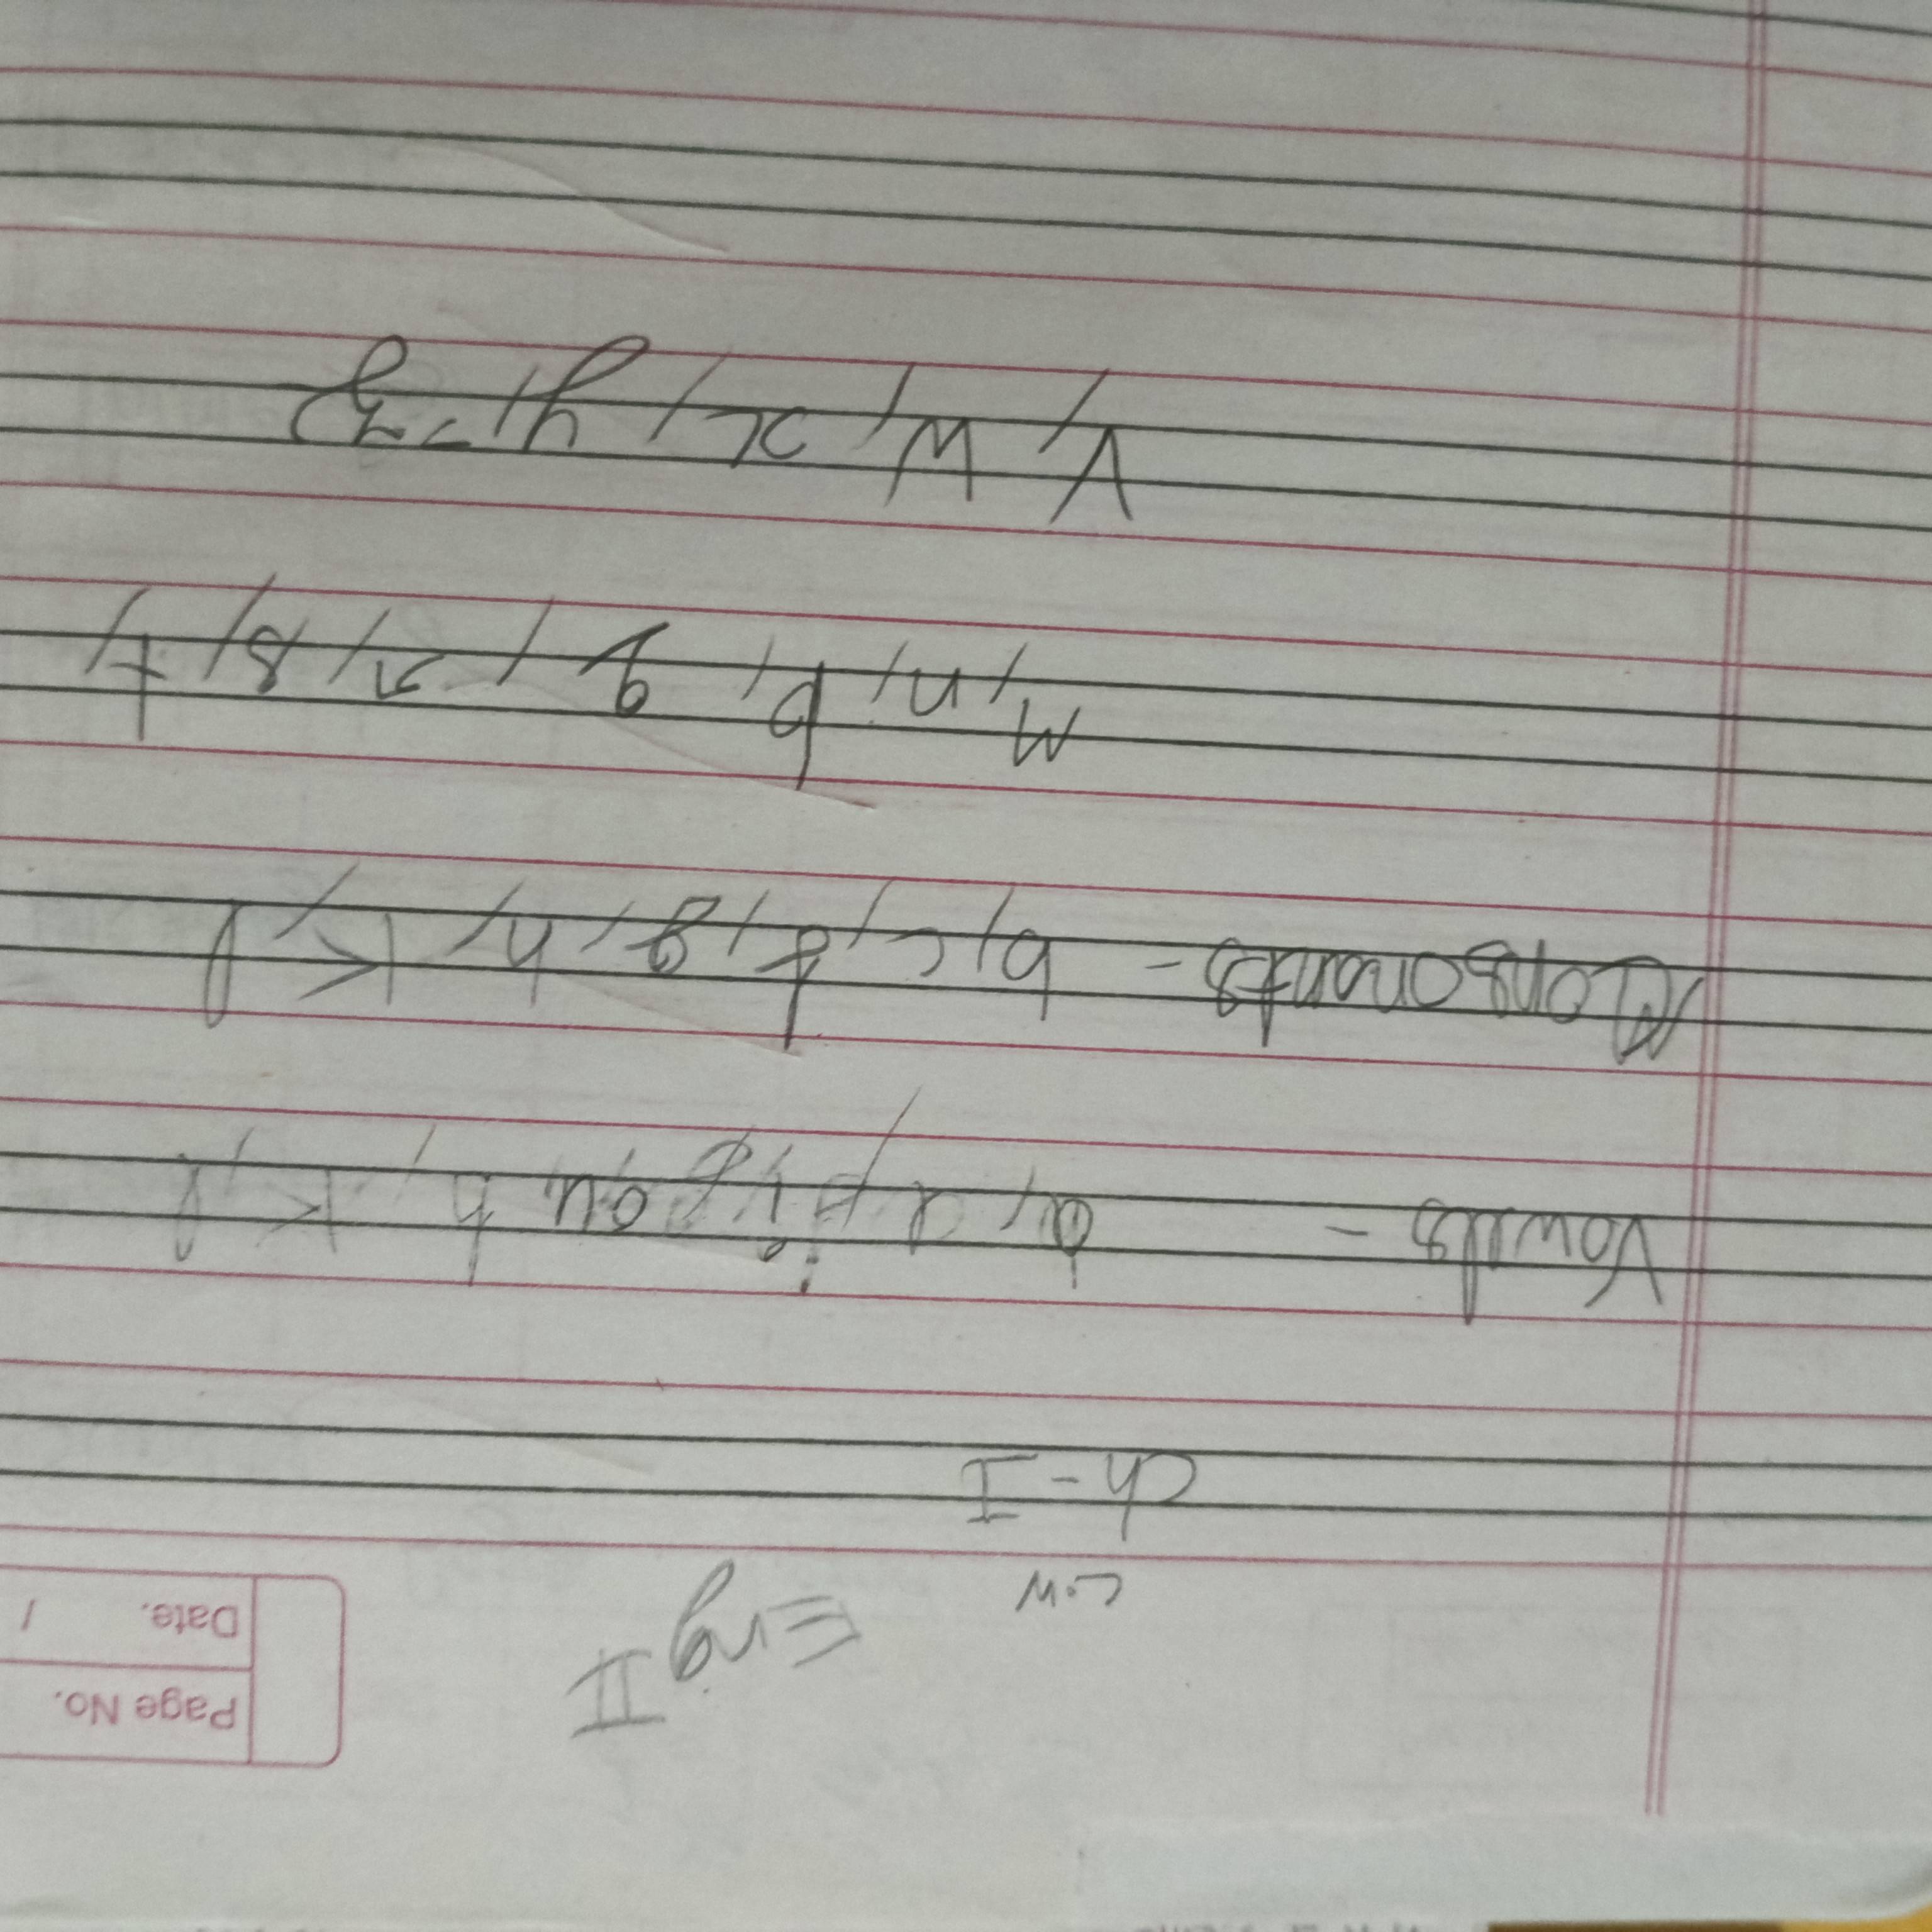 Page No.
Date. /
Eng II
C.W
Ch - I
Vowels - a, i, o u, h, K, l
Consonants - b, c, f, g, h, K, l
m, n, p, q, r, s, t,
V, W, x, y, z